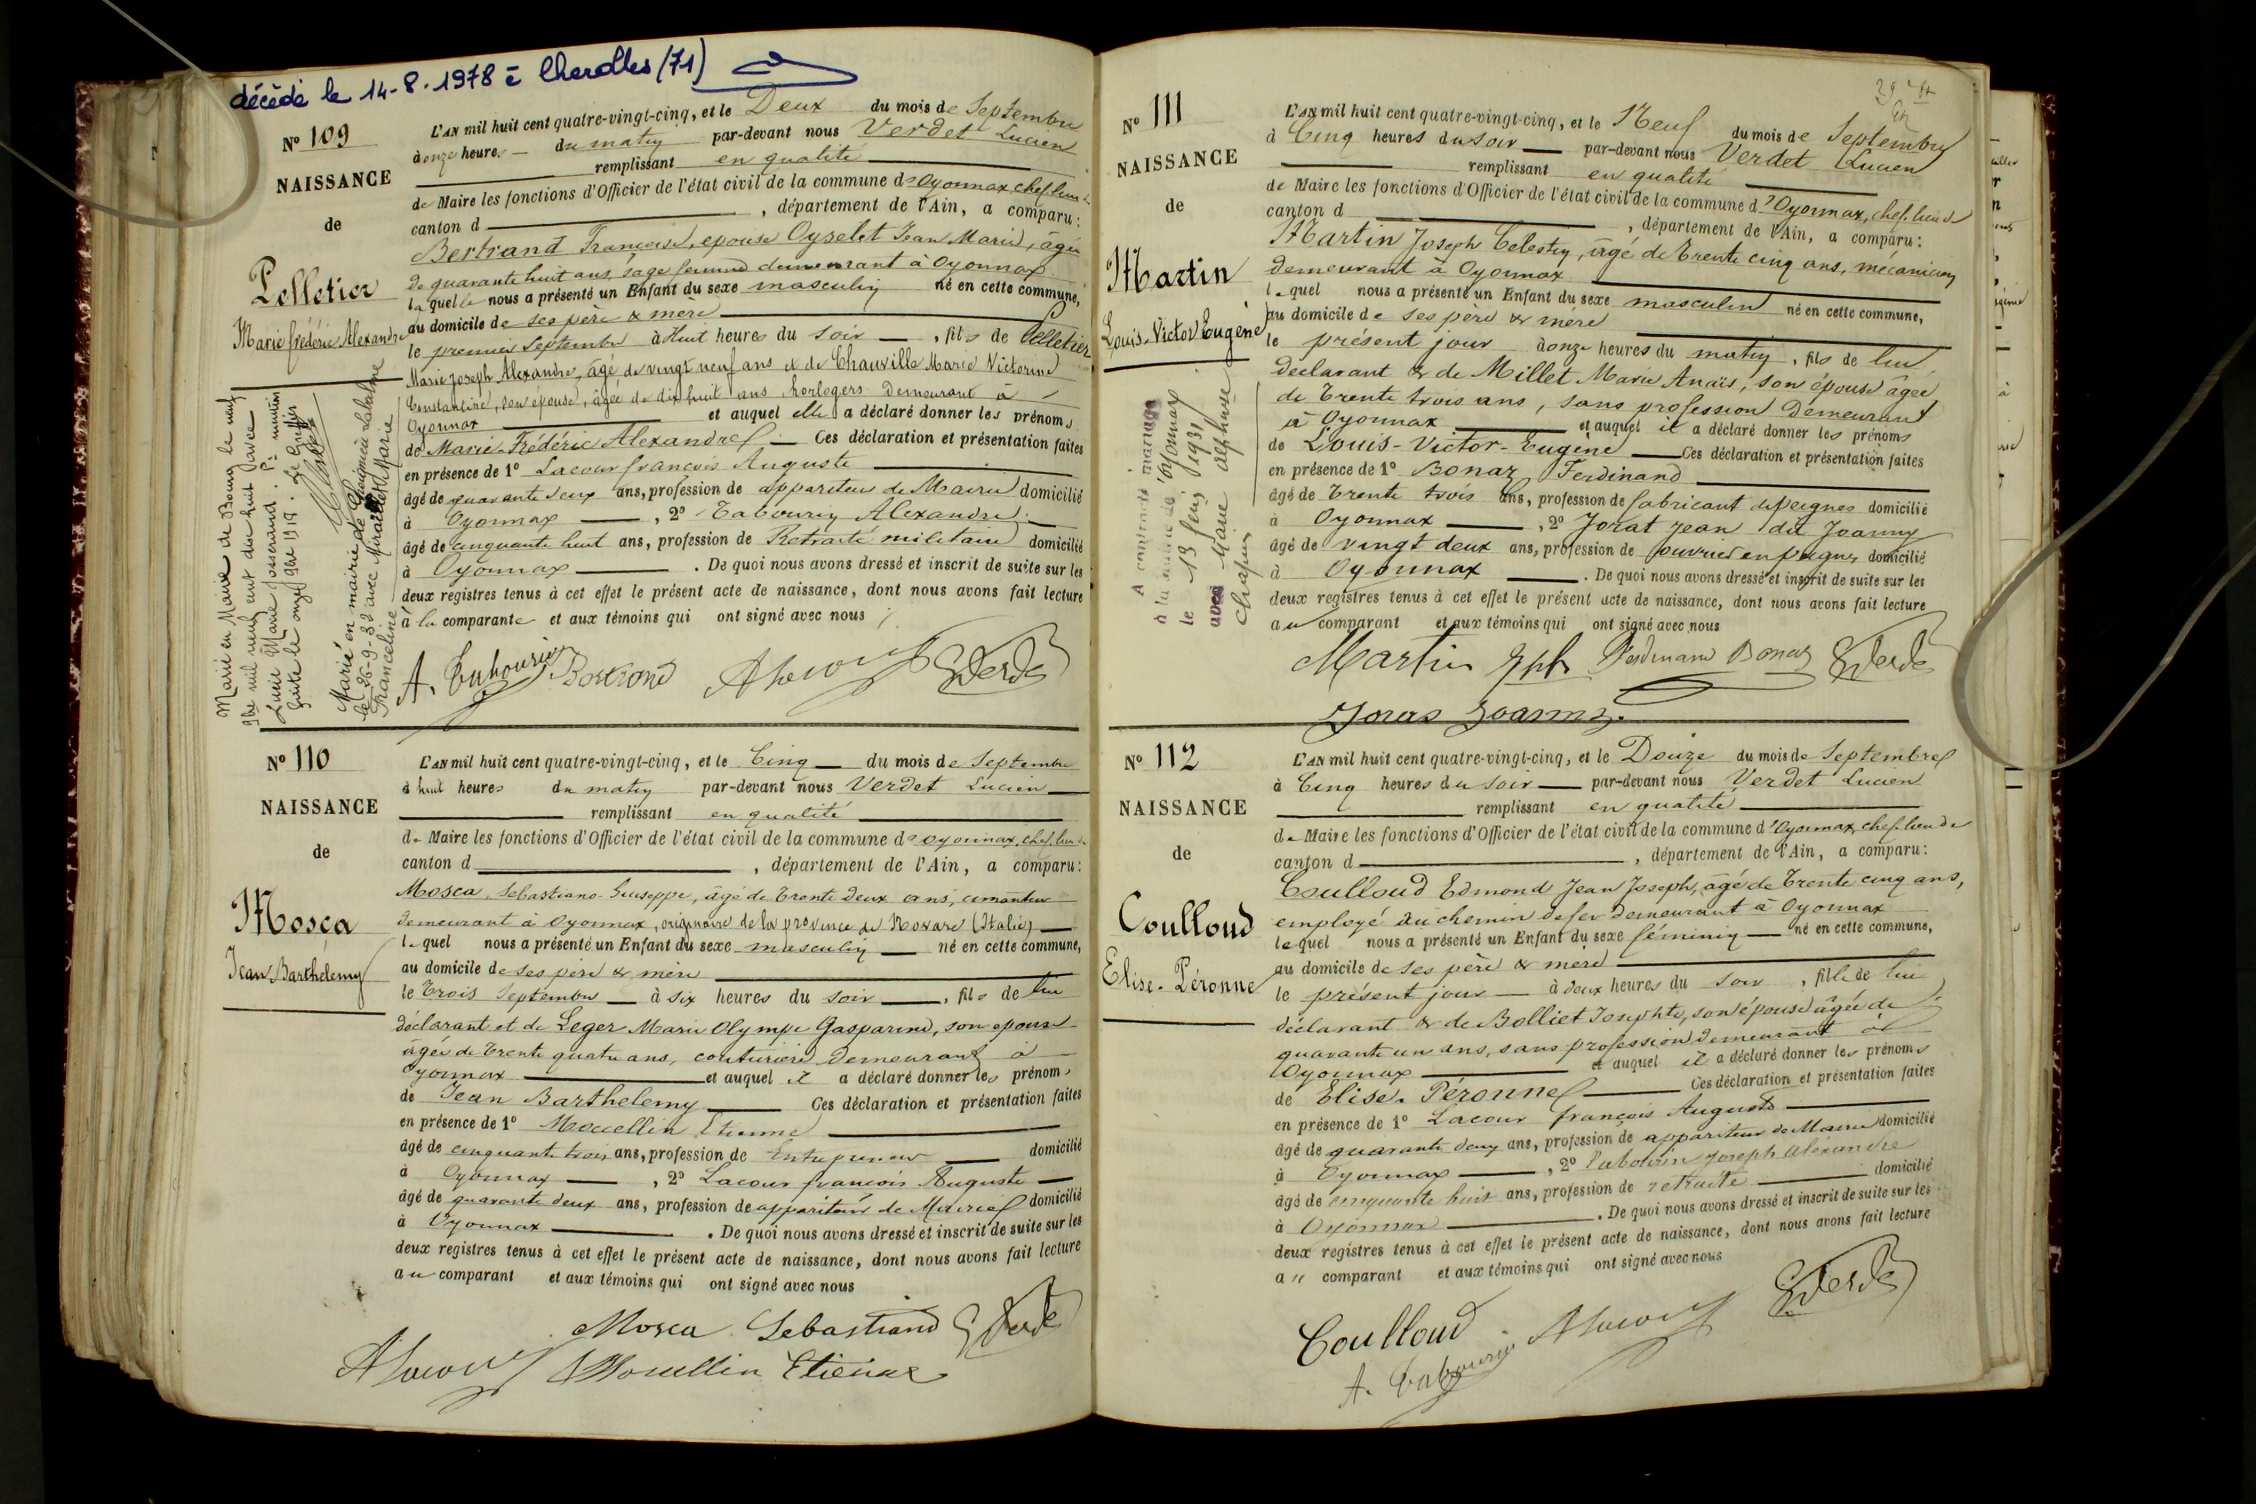 décédé le 14-8-1978 à Charolles (71)
N° 109
NAISSANCE
de
Pelletier
Marie frédéric Alexandre
L'AN mil huit cent quatre-vingt-cinq, et le Deux du mois de Septembre
à onze heures du matin par-devant nous Verdet Lucien
remplissant en qualité
de Maire les fonctions d'Officier de l'état civil de la commune d'Oyonnax, chef lieu de
canton d , département de l'Ain, a comparu:
Bertrand Françoise, épouse Oyselet Jean Marie, âgée
de quarante huit ans, sage femme demeurant à Oyonnax
laquelle nous a présenté un Enfant du sexe masculin né en cette commune,
au domicile de ses père & mère
le premier Septembre à Huit heures du soir, fils de Pelletier
Marie Joseph Alexandre, âgé de vingt neuf ans et de Chauville Marie Victorine
Constantine, son épouse, âgée de dix huit ans, horlogers demeurant à
Oyonnax et auquel elle a déclaré donner les prénoms
de Marie-Frédéric Alexandre Ces déclaration et présentation faites
en présence de 1° Lacour françois Auguste
âgé de quarante deux ans, profession de appariteur de Mairie domicilié
à Oyonnax, 2° Tabourin Alexandre
âgé de cinquante huit ans, profession de Retraité militaire domicilié
à Oyonnax. De quoi nous avons dressé et inscrit de suite sur les
deux registres tenus à cet effet le présent acte de naissance, dont nous avons fait lecture
à la comparante et aux témoins qui ont signé avec nous
A. Tabourin Bertrand ALacour Verdet
Marié en Mairie de Bourg le neuf
9bre mil neuf cent dix huit avec
Lucie Marie Josserand. Pr mention
faite le onze 9bre 1918. Le Greffier
Marié en mairie de
le 26-9-32 avec
Franceline
N° 110
NAISSANCE
de
Mosca
Jean Barthélemy
L'AN mil huit cent quatre-vingt-cinq, et le Cinq du mois de Septembre
à huit heures du matin par-devant nous Verdet Lucien
remplissant en qualité
de Maire les fonctions d'Officier de l'état civil de la commune d'Oyonnax, chef lieu de
canton d , département de l'Ain, a comparu:
Mosca, Sebastiano Giuseppe, âgé de trente deux ans, cimenteur
demeurant à Oyonnax, originaire de la province de Novare (Italie)
lequel nous a présenté un Enfant du sexe masculin né en cette commune,
au domicile de ses père & mère
le trois Septembre à six heures du soir, fils de lui
déclarant et de Leger Marie Olympe Gasparine, son épouse
âgée de trente quatre ans, couturière demeurant à
Oyonnax et auquel il a déclaré donner les prénoms
de Jean Barthelemy Ces déclaration et présentation faites
en présence de 1° Moccellin Etienne
âgé de cinquante trois ans, profession de Entrepreneur domicilié
à Oyonnax, 2° Lacour françois Auguste
âgé de quarante deux ans, profession de appariteur de Mairie domicilié
à Oyonnax. De quoi nous avons dressé et inscrit de suite sur les
deux registres tenus à cet effet le présent acte de naissance, dont nous avons fait lecture
au comparant et aux témoins qui ont signé avec nous
Mosca Sebastiano Verdet
ALacour Moccellin Etienne
N° 111
NAISSANCE
de
Martin
Louis-Victor Eugène
L'AN mil huit cent quatre-vingt-cinq, et le Neuf du mois de Septembre
à Cinq heures du soir par-devant nous Verdet Lucien
remplissant en qualité
de Maire les fonctions d'Officier de l'état civil de la commune d'Oyonnax, chef lieu de
canton d , département de l'Ain, a comparu:
Martin Joseph Celestin, âgé de trente cinq ans, mécanicien
demeurant à Oyonnax
lequel nous a présenté un Enfant du sexe masculin né en cette commune,
au domicile de ses père & mère
le présent jour à onze heures du matin, fils de lui
déclarant & de Millet Marie Anaïs, son épouse âgée
de trente trois ans, sans profession demeurant
à Oyonnax et auquel il a déclaré donner les prénoms
de Louis-Victor-Eugène Ces déclaration et présentation faites
en présence de 1° Bonaz Ferdinand
âgé de trente trois ans, profession de fabricant de peignes domicilié
à Oyonnax, 2° Jorat Jean dit Joanny
âgé de vingt deux ans, profession de ouvrier en peignes domicilié
à Oyonnax. De quoi nous avons dressé et inscrit de suite sur les
deux registres tenus à cet effet le présent acte de naissance, dont nous avons fait lecture
au comparant et aux témoins qui ont signé avec nous
Martin Jph Ferdinand Bonaz Verdet
Joras Joanny
A contracté mariage
à la mairie de Oyonnax
le 13 1931
avec Marie Alphonsine
Chapuis
N° 112
NAISSANCE
de
Coulloud
Elise-Péronne
L'AN mil huit cent quatre-vingt-cinq, et le Douze du mois de Septembre
à Cinq heures du soir par-devant nous Verdet Lucien
remplissant en qualité
de Maire les fonctions d'Officier de l'état civil de la commune d'Oyonnax, chef lieu de
canton d , département de l'Ain, a comparu:
Coulloud Edmond Jean Joseph, âgé de trente cinq ans,
employé au chemin de fer demeurant à Oyonnax
lequel nous a présenté un Enfant du sexe féminin né en cette commune,
au domicile de ses père & mère
le présent jour à deux heures du soir, fille de lui
déclarant & de Bolliet Josephte, son épouse âgée de
quarante un ans, sans profession demeurant à
Oyonnax et auquel il a déclaré donner les prénoms
de Elise-Péronne Ces déclaration et présentation faites
en présence de 1° Lacour françois Auguste
âgé de quarante deux ans, profession de appariteur de Mairie domicilié
à Oyonnax, 2° Tabourin Joseph Alexandre
âgé de cinquante huit ans, profession de retraité domicilié
à Oyonnax. De quoi nous avons dressé et inscrit de suite sur les
deux registres tenus à cet effet le présent acte de naissance, dont nous avons fait lecture
au comparant et aux témoins qui ont signé avec nous
Coulloud ALacour Verdet
A. Tabourin